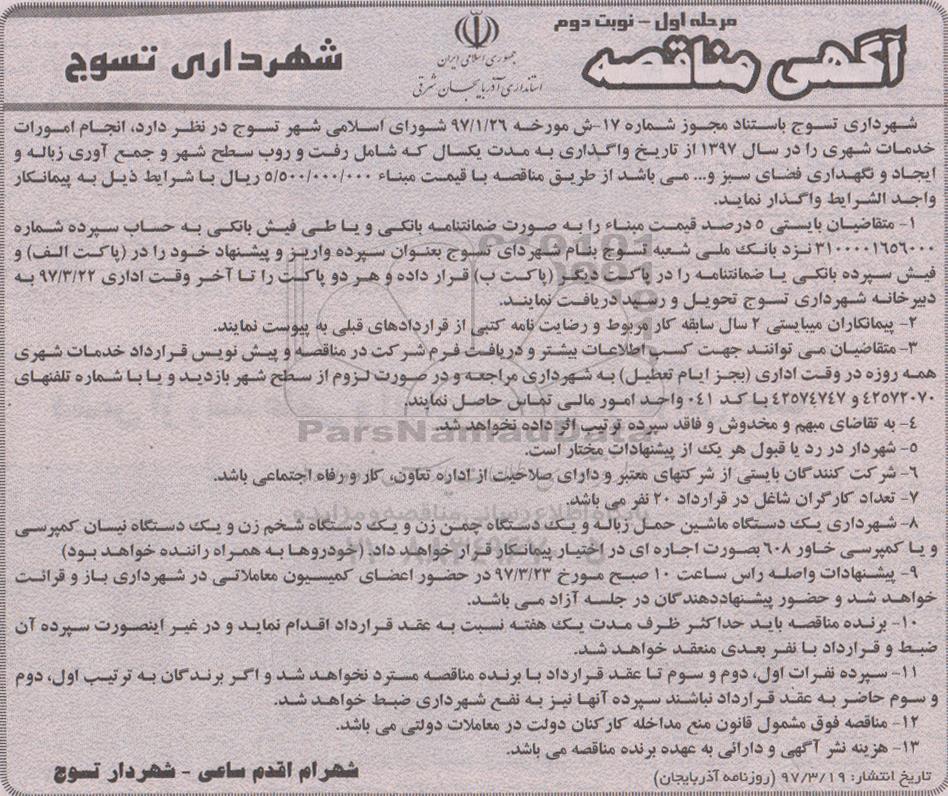 مرحله اول - نوبت دوم
آگهی مناقصه
جمهوری اسلامی ایران
استانداری آذربایجان شرقی
شهرداری تسوج
شهرداری تسوج باستناد مجوز شماره ۱۷-ش مورخه ۹۷/۱/۲۶ شورای اسلامی شهر تسوج در نظر دارد، انجام امورات
خدمات شهری را در سال ۱۳۹۷ از تاریخ واگذاری به مدت یکسال که شامل رفت و روب سطح شهر و جمع آوری زباله و
ایجاد و نگهداری فضای سبز و... می باشد از طریق مناقصه با قیمت مبناء ۵/۵۰۰/۰۰۰/۰۰۰ ریال با شرایط ذیل به پیمانکار
واجد الشرایط واگذار نماید.
۱- متقاضیان بایستی ۵ درصد قیمت مبناء را به صورت ضمانتنامه بانکی و یا طی فیش بانکی به حساب سپرده شماره
۳۱۰۰۰۰۱۶۵۶۰۰۰ نزد بانک ملی شعبه تسوج بنام شهردای تسوج بعنوان سپرده واریز و پیشنهاد خود را در (پاکت الف) و
فیش سپرده بانکی یا ضمانتنامه را در پاکت دیگر (پاکت ب) قرار داده و هر دو پاکت را تا آخر وقت اداری ۹۷/۳/۲۲ به
دبیرخانه شهرداری تسوج تحویل و رسید دریافت نمایند.
۲- پیمانکاران میبایستی ۲ سال سابقه کار مربوط و رضایت نامه کتبی از قراردادهای قبلی به پیوست نمایند.
۳- متقاضیان می توانند جهت کسب اطلاعات بیشتر و دریافت فرم شرکت در مناقصه و پیش نویس قرارداد خدمات شهری
همه روزه در وقت اداری (بجز ایام تعطیل) به شهرداری مراجعه و در صورت لزوم از سطح شهر بازدید و یا با شماره تلفنهای
۴۲۵۷۲۰۷۰ و ۴۲۵۷۴۷۴۷ با کد ۰۴۱ واحد امور مالی تماس حاصل نمایند.
۴- به تقاضای مبهم و مخدوش و فاقد سپرده ترتیب اثر داده نخواهد شد.
ParsNamadData
۵- شهردار در رد یا قبول هر یک از پیشنهادات مختار است.
۶- شرکت کنندگان بایستی از شرکتهای معتبر و دارای صلاحیت از اداره تعاون، کار و رفاه اجتماعی باشد.
۷- تعداد کارگران شاغل در قرارداد ۲۰ نفر می باشد.
۸- شهرداری یک دستگاه ماشین حمل زباله و یک دستگاه چمن زن و یک دستگاه شخم زن و یک دستگاه نیسان کمپرسی
و یا کمپرسی خاور ۶۰۸ بصورت اجاره ای در اختیار پیمانکار قرار خواهد داد. (خودروها به همراه راننده خواهد بود)
۹- پیشنهادات واصله راس ساعت ۱۰ صبح مورخ ۹۷/۳/۲۳ در حضور اعضای کمیسیون معاملاتی در شهرداری باز و قرائت
خواهد شد و حضور پیشنهاددهندگان در جلسه آزاد می باشد.
۱۰- برنده مناقصه باید حداکثر ظرف مدت یک هفته نسبت به عقد قرارداد اقدام نماید و در غیر اینصورت سپرده آن
ضبط و قرارداد با نفر بعدی منعقد خواهد شد.
۱۱- سپرده نفرات اول، دوم و سوم تا عقد قرارداد با برنده مناقصه مسترد نخواهد شد و اگر برندگان به ترتیب اول، دوم
و سوم حاضر به عقد قرارداد نباشند سپرده آنها نیز به نفع شهرداری ضبط خواهد شد.
۱۲- مناقصه فوق مشمول قانون منع مداخله کارکنان دولت در معاملات دولتی می باشد.
۱۳- هزینه نشر آگهی و دارائی به عهده برنده مناقصه می باشد.
تاریخ انتشار: ۹۷/۳/۱۹ (روزنامه آذربایجان)
شهرام اقدم ساعی - شهردار تسوج